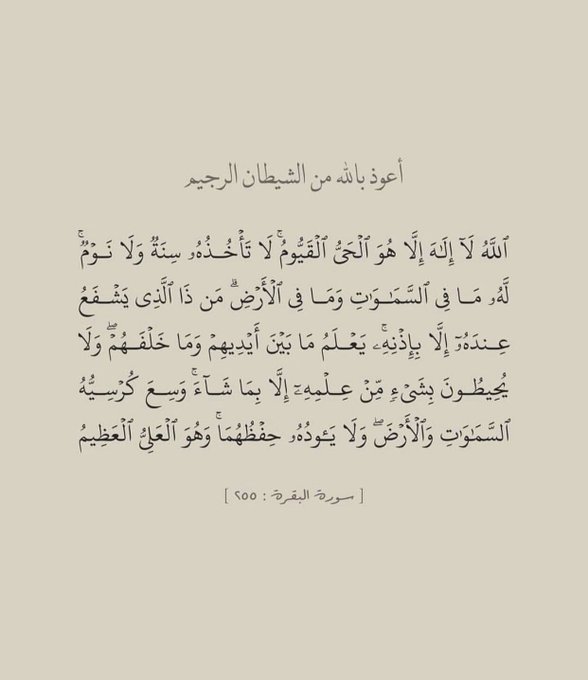 أعوذ بالله من الشيطان الرجيم
ٱللَّهُ لَآ إِلَٰهَ إِلَّا هُوَ ٱلْحَىُّ ٱلْقَيُّومُ ۚ لَا تَأْخُذُهُۥ سِنَةٌ وَلَا نَوْمٌ ۚ
لَّهُۥ مَا فِى ٱلسَّمَٰوَٰتِ وَمَا فِى ٱلْأَرْضِ ۗ مَن ذَا ٱلَّذِى يَشْفَعُ
عِندَهُۥٓ إِلَّا بِإِذْنِهِۦ ۚ يَعْلَمُ مَا بَيْنَ أَيْدِيهِمْ وَمَا خَلْفَهُمْ ۖ وَلَا
يُحِيطُونَ بِشَىْءٍ مِّنْ عِلْمِهِۦٓ إِلَّا بِمَا شَآءَ ۚ وَسِعَ كُرْسِيُّهُ
ٱلسَّمَٰوَٰتِ وَٱلْأَرْضَ ۖ وَلَا يَـُٔودُهُۥ حِفْظُهُمَا ۚ وَهُوَ ٱلْعَلِىُّ ٱلْعَظِيمُ
[ سورة البقرة : ٢٥٥ ]